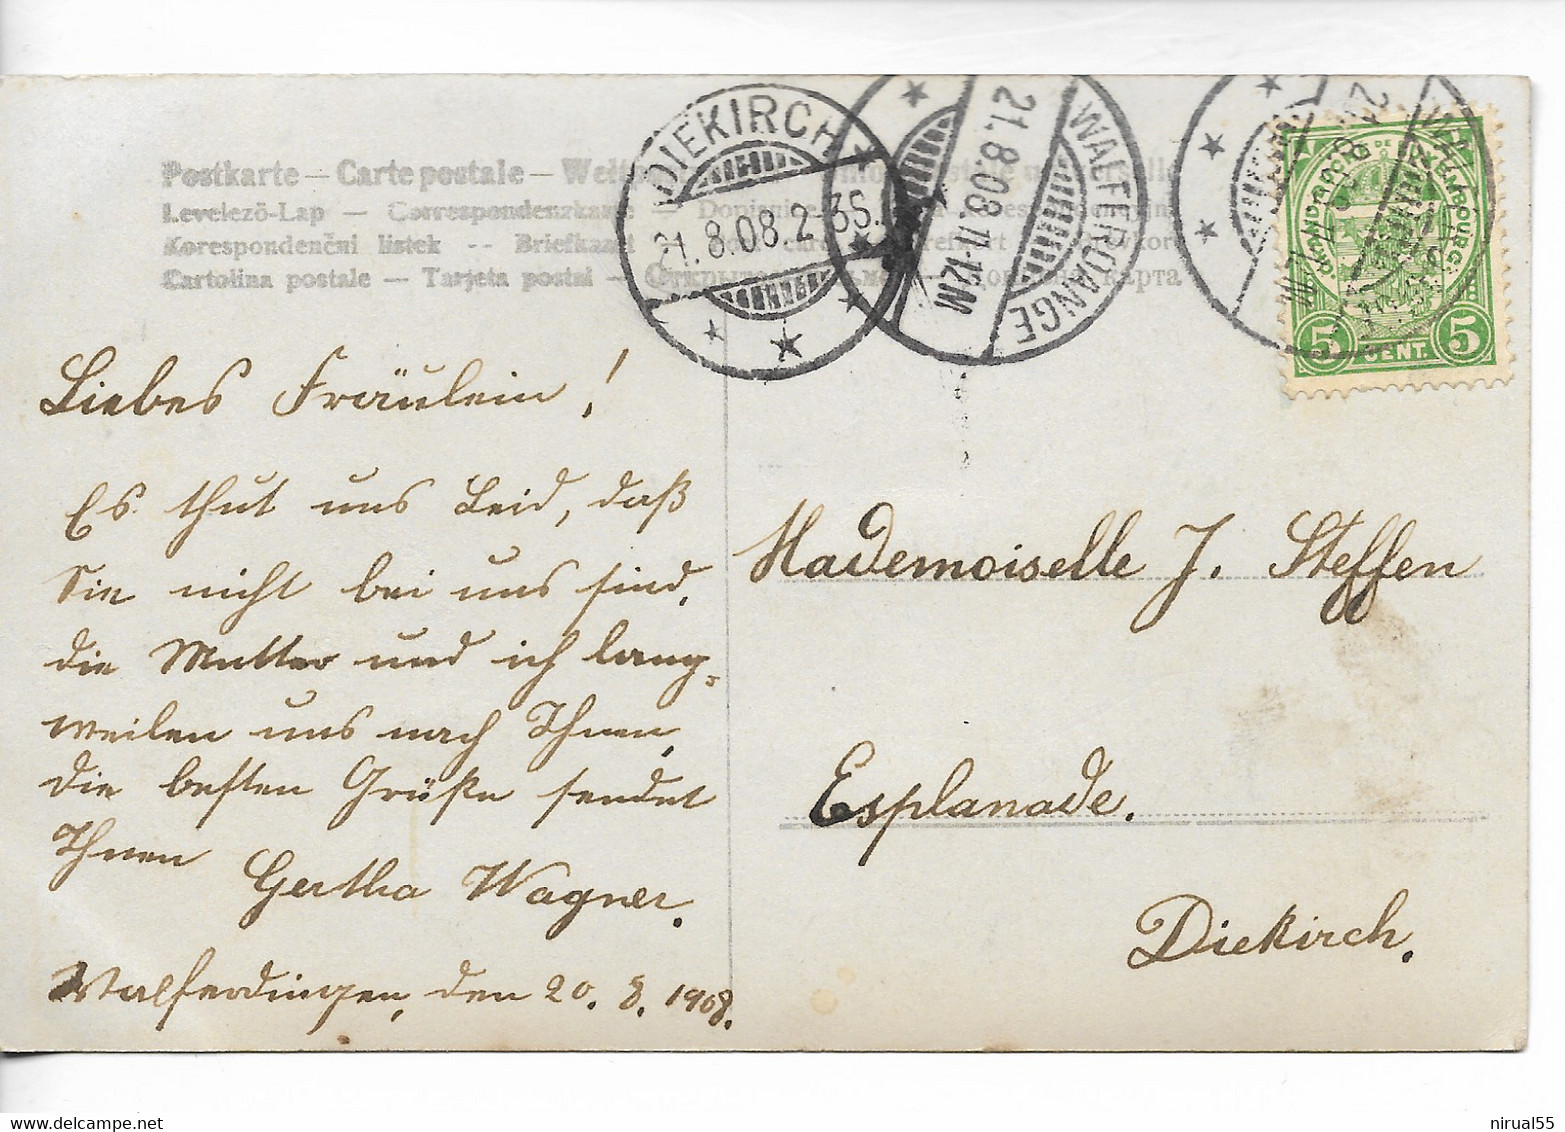 Postkarte – Carte postale –
Levelező-Lap — Correspondenzkarte —
Korespondenční listek -- Briefkaart
Cartolina postale – Tarjeta postal –
DIEKIRCH
21.8.08.2-3S.
WALFERDANGE
21.8.08.11-12M
GRAND DUCHÉ DE LUXEMBOURG
5 CENT. 5
Liebes Fräulein!
Es thut uns Leid, daß
Sie nicht bei uns sind,
die Mutter und ich lang-
weilen uns nach Ihnen,
die besten Grüße sendet
Ihnen
Gertha Wagner.
Walferdingen, den 20. 8. 1908.
Mademoiselle J. Steffen
Esplanade.
Diekirch.
nirual55